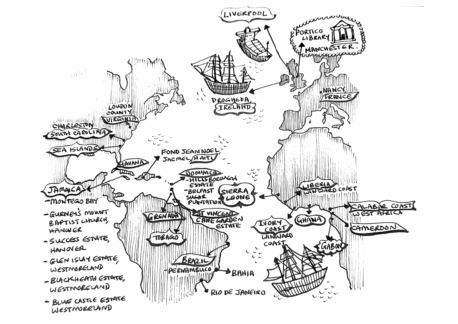 LIVERPOOL
PORTICO
LIBRARY
MANCHESTER.
DROGHEDA,
IRELAND
NANCY
FRANCE
LOUDON
COUNTY
VIRGINIA
CHARLESTON
SOUTH CAROLINA
SEA ISLANDS
HAVANA
FOND JEAN NOEL
JACMEL/HAITI
JAMAICA
- MONTEGO BAY
- GURNEY'S MOUNT
BAPTIST CHURCH,
HANOVER
- SUCCESS ESTATE,
HANOVER
- GLEN ISLAY ESTATE,
WESTMORELAND
- BLACKHEATH ESTATE,
WESTMORELAND
- BLUE CASTLE ESTATE
WESTMORELAND
DOMINICA
- HILLSBOROUGH
ESTATE
- BELFAST
PLANTATION
GRENADA
TOBAGO
ST VINCENT
CANE GARDEN
ESTATE
BRAZIL
- PERNAMBUCO
BAHIA
RIO DE JANEIRO
SIERRA
LEONE
LIBERIA
WINDWARD COAST
IVORY
COAST
GHANA
GABON
CALABAR COAST
WEST AFRICA
CAMEROON